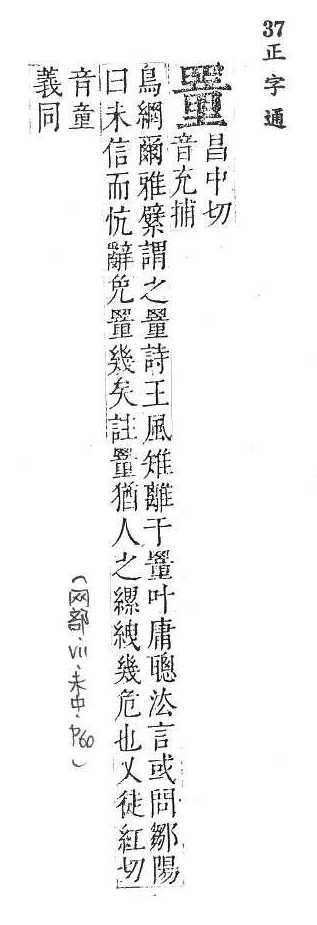 37正字通
罿
昌中切
音充捕
鳥網爾雅繴謂之罿詩王風雉離于罿叶庸聰法言或問鄒陽
曰未信而忼辭免罿幾矣註罿猶人之縲絏幾危也又徒紅切
音童
義同
(网部·VII·未中·P60)